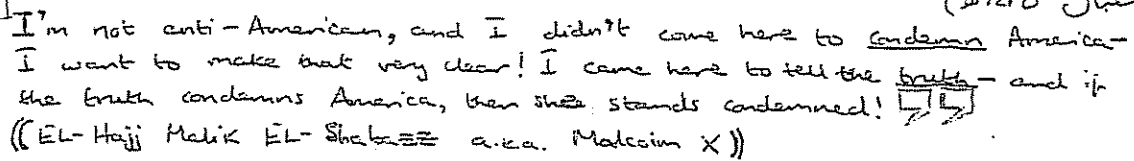 I'm not anti-American, and I didn't come here to condemn America-
I want to make that very clear! I came here to tell the truth - and if
the truth condemns America, then she stands condemned!
((EL-Hajj Malik EL-Shabazz a.k.a. Malcolm X))